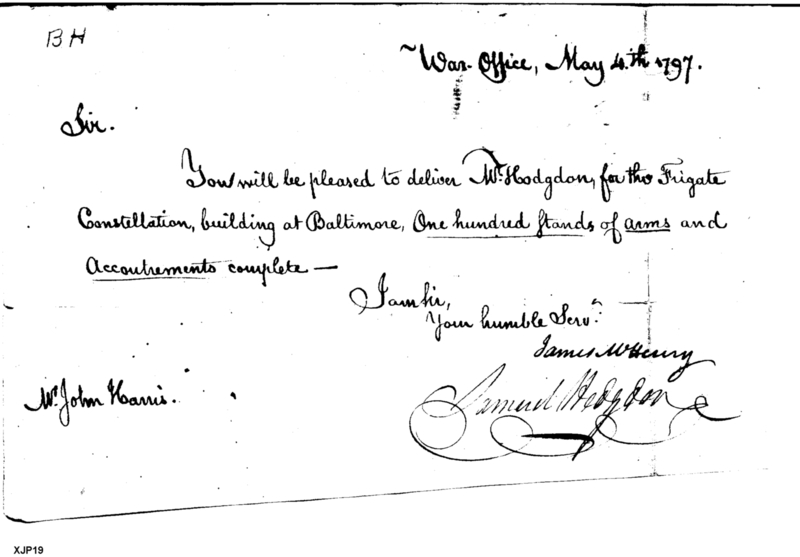 BH
War Office, May 4.th 1797.
Sir.
You will be pleased to deliver Mr. Hodgdon, for the Frigate
Constellation, building at Baltimore, One hundred stands of arms and
Accoutrements complete —
I am Sir,
Your humble Servt.
James McHenry
Mr. John Harris.
Samuel Hodgdon
XJP19